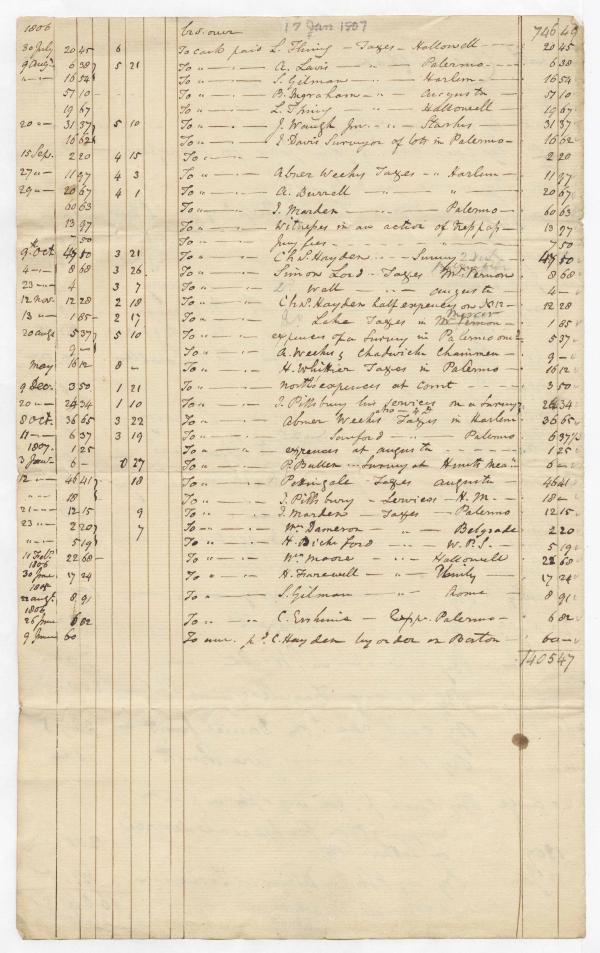 1806 bro. over 17 Jan 1807 746 49
30 July 20 45 6 To cash paid L. Thing - Taxes - Hallowell 20 45
9 Augt. 6 38 5 21 To " A. Davis " Palermo 6 38
" 16 54 To " S. Gilman " Harlem 16 54
57 10 To " B. Ingraham " Augusta 57 10
19 67 To " L. Thing " Hallowell 19 67
20 " 31 37 5 10 To " J. Waugh Jnr. " Starks 31 37
16 62 To " J. Davis Surveyor of lots in Palermo 16 62
15 Sep. 2 20 4 15 To " 2 20
27 " 11 97 4 3 To " Abner Weeks Taxes " Harlem 11 97
29 " 20 67 4 1 To " A. Burrell " " 20 67
60 63 To " J. Marden " Palermo 60 63
13 97 To " Witnesses in an action of trespass 13 97
7 50 To " Jury fees 7 50
9th Oct. 47 50 3 21 To " Ch S. Hayden Survey 47 50
4 " 8 68 3 26 To " Simon Lord Taxes Mt. Vernon 8 68
23 " 4 3 7 To " Wall " Augusta 4 -
12 Nov. 12 28 2 18 To " Ch S. Hayden half expences on 12 28
13 " 1 85 2 17 To " Lake Taxes in Mercer Mt. Vernon 1 85
20 Augt 5 37 5 10 To " expences of a Survey in Palermo 5 37
9 - To " A. Weeks & Chadwick Chainmen 9 -
May 16 12 8 - To " H. Whittier Taxes in Palermo 16 12
9 Dec. 3 50 1 21 To " North's expences at Court 3 50
20 " 24 34 1 10 To " J. Pittsbury his services on a Survey 24 34
8 Oct. 36 65 3 22 To " Abner Weeks Taxes in Harlem 36 65
11 " 6 37 3 19 To " Sanford " Palermo 6 37
1807. 1 25 To " expences at Augusta 1 25
3 Jany. 6 - 0 27 To " P. Bullen Survey at 6 -
12 " 46 41 18 To " Pettingale Taxes Augusta 46 41
" 18 To " J. Pittsbury Services - H. M. 18 -
21 " 12 15 9 To " J. Marden Taxes Palermo 12 15
23 " 2 20 7 To " Wm. Dameron " Belgrade 2 20
" 5 19 To " H. Bickford " W. P. S. 5 19
11 Feby. 22 68 To " Wm. Moore " Hallowell 22 68
1806
30 June 17 24 To " H. Farewell " Unity 17 24
1805
22 Augt. 8 91 To " S. Gilman " Rome 8 91
1806
26 June 6 82 To " C. Erskine Expp. Palermo 6 82
9 June 60 To pd. C. Hayden by order on Barton 60 -
1405 47